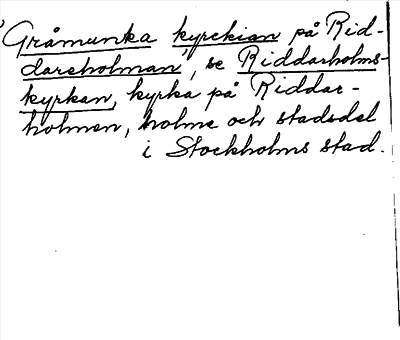 'Gråmunka kyrckian på Rid-
darsholman', se Riddarholms-
kyrkan, kyrka på Riddar-
holmen, holme och stadsdel
i Stockholms stad.